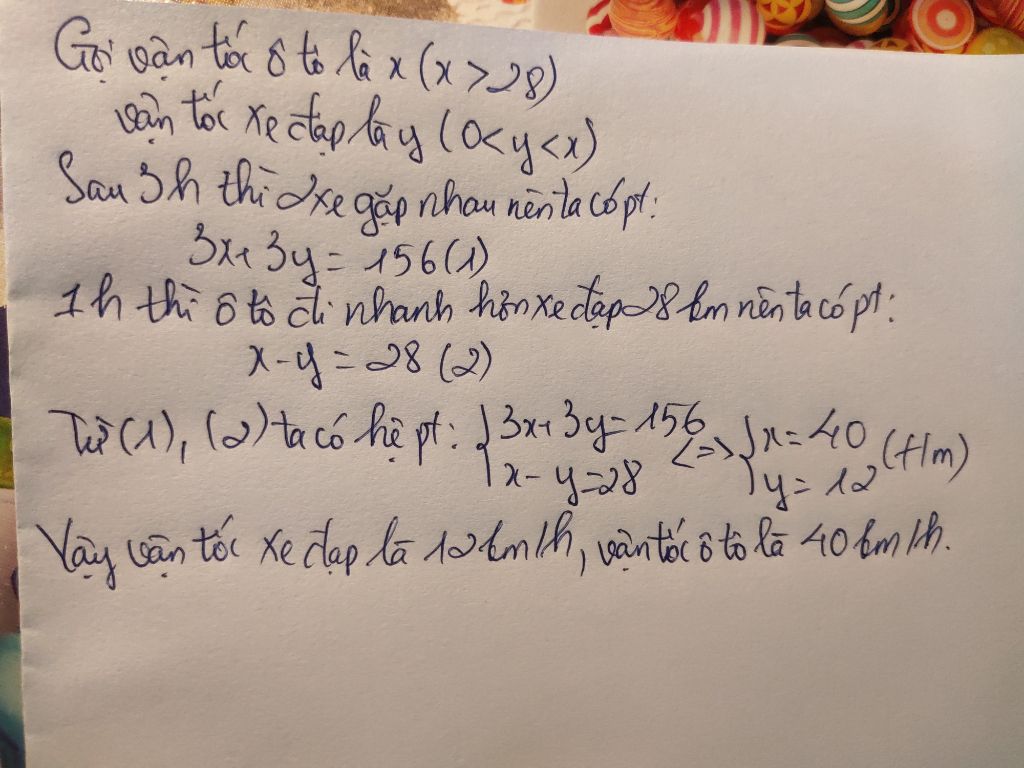 Gọi vận tốc ô tô là x (x > 28)
vận tốc xe đạp là y (0 < y < x)
Sau 3h thì 2 xe gặp nhau nên ta có pt:
3x + 3y = 156 (1)
1h thì ô tô đi nhanh hơn xe đạp 28 km nên ta có pt:
x - y = 28 (2)
Từ (1), (2) ta có hệ pt: { 3x + 3y = 156 <=> { x = 40 (t/m)
x - y = 28 y = 12
Vậy vận tốc xe đạp là 12 km/h, vận tốc ô tô là 40 km/h.